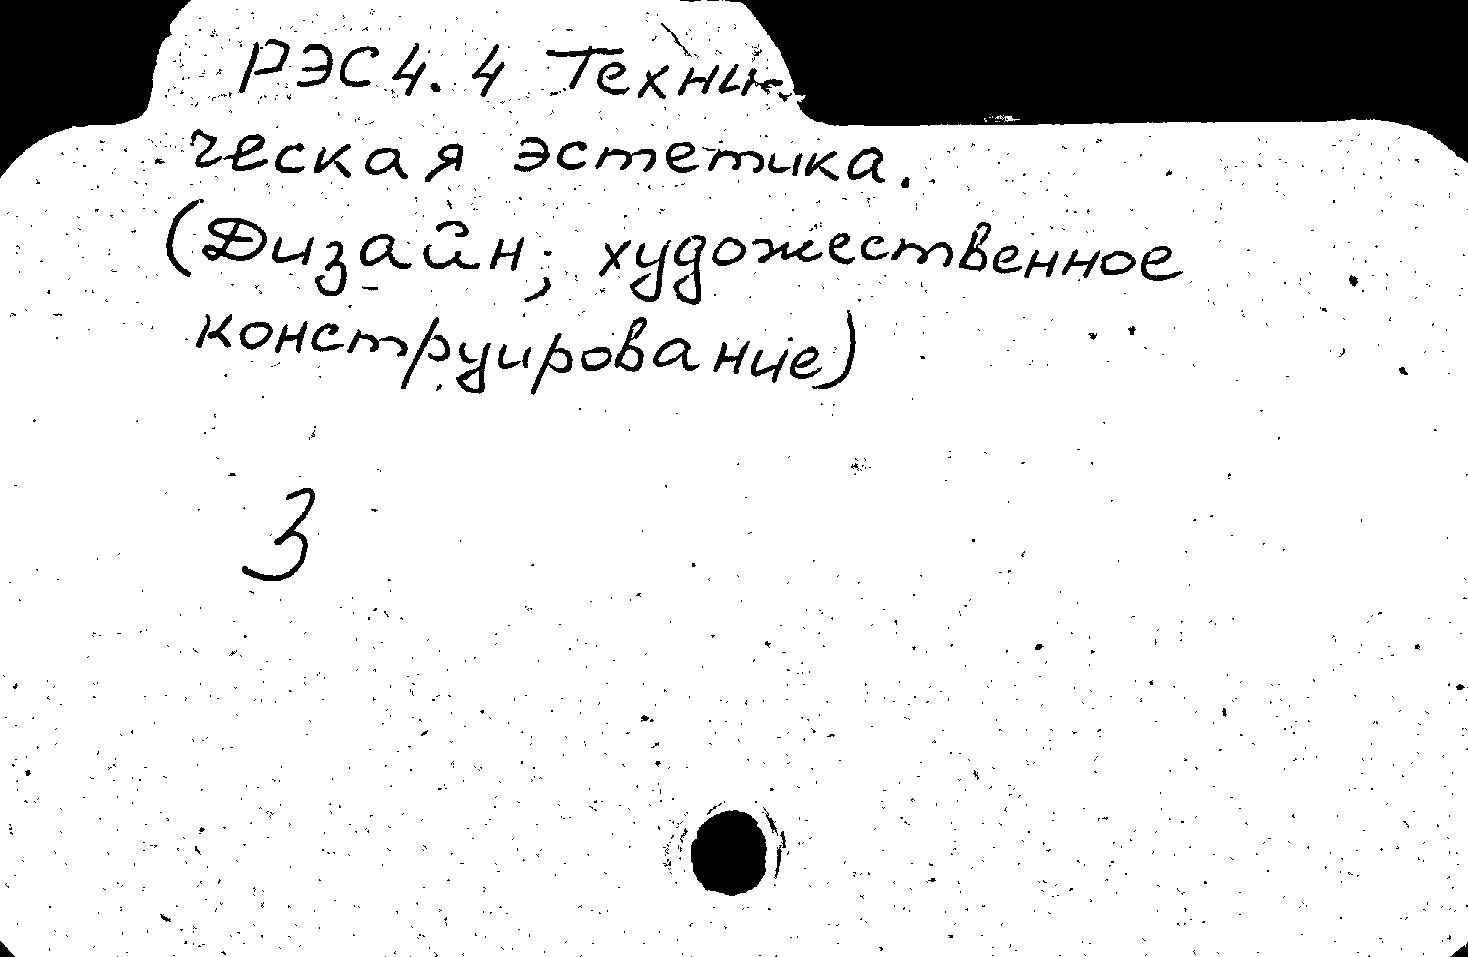 РЭС4.4 Техни-
ческая эстетика.
(Дизайн; художественное
конструирование)
3